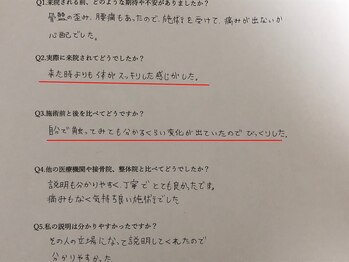 Q1.来院される前、どのような期待や不安がありましたか？
骨盤の歪み、腰痛もあったので、施術を受けて、痛みが出ないか
心配でした。
Q2.実際に来院されてどうでしたか？
来た時よりも体がスッキリした感じがした。
Q3.施術前と後を比べてどうですか？
自分で触ってみても分かるくらい変化が出ていたのでびっくりした。
Q4.他の医療機関や接骨院、整体院と比べてどうでしたか？
説明も分かりやすく、丁寧でとても良かったです。
痛みもなく気持ち良い施術でした。
Q5.私の説明は分かりやすかったですか？
その人の立場になって説明してくれたので
分かりやすかった